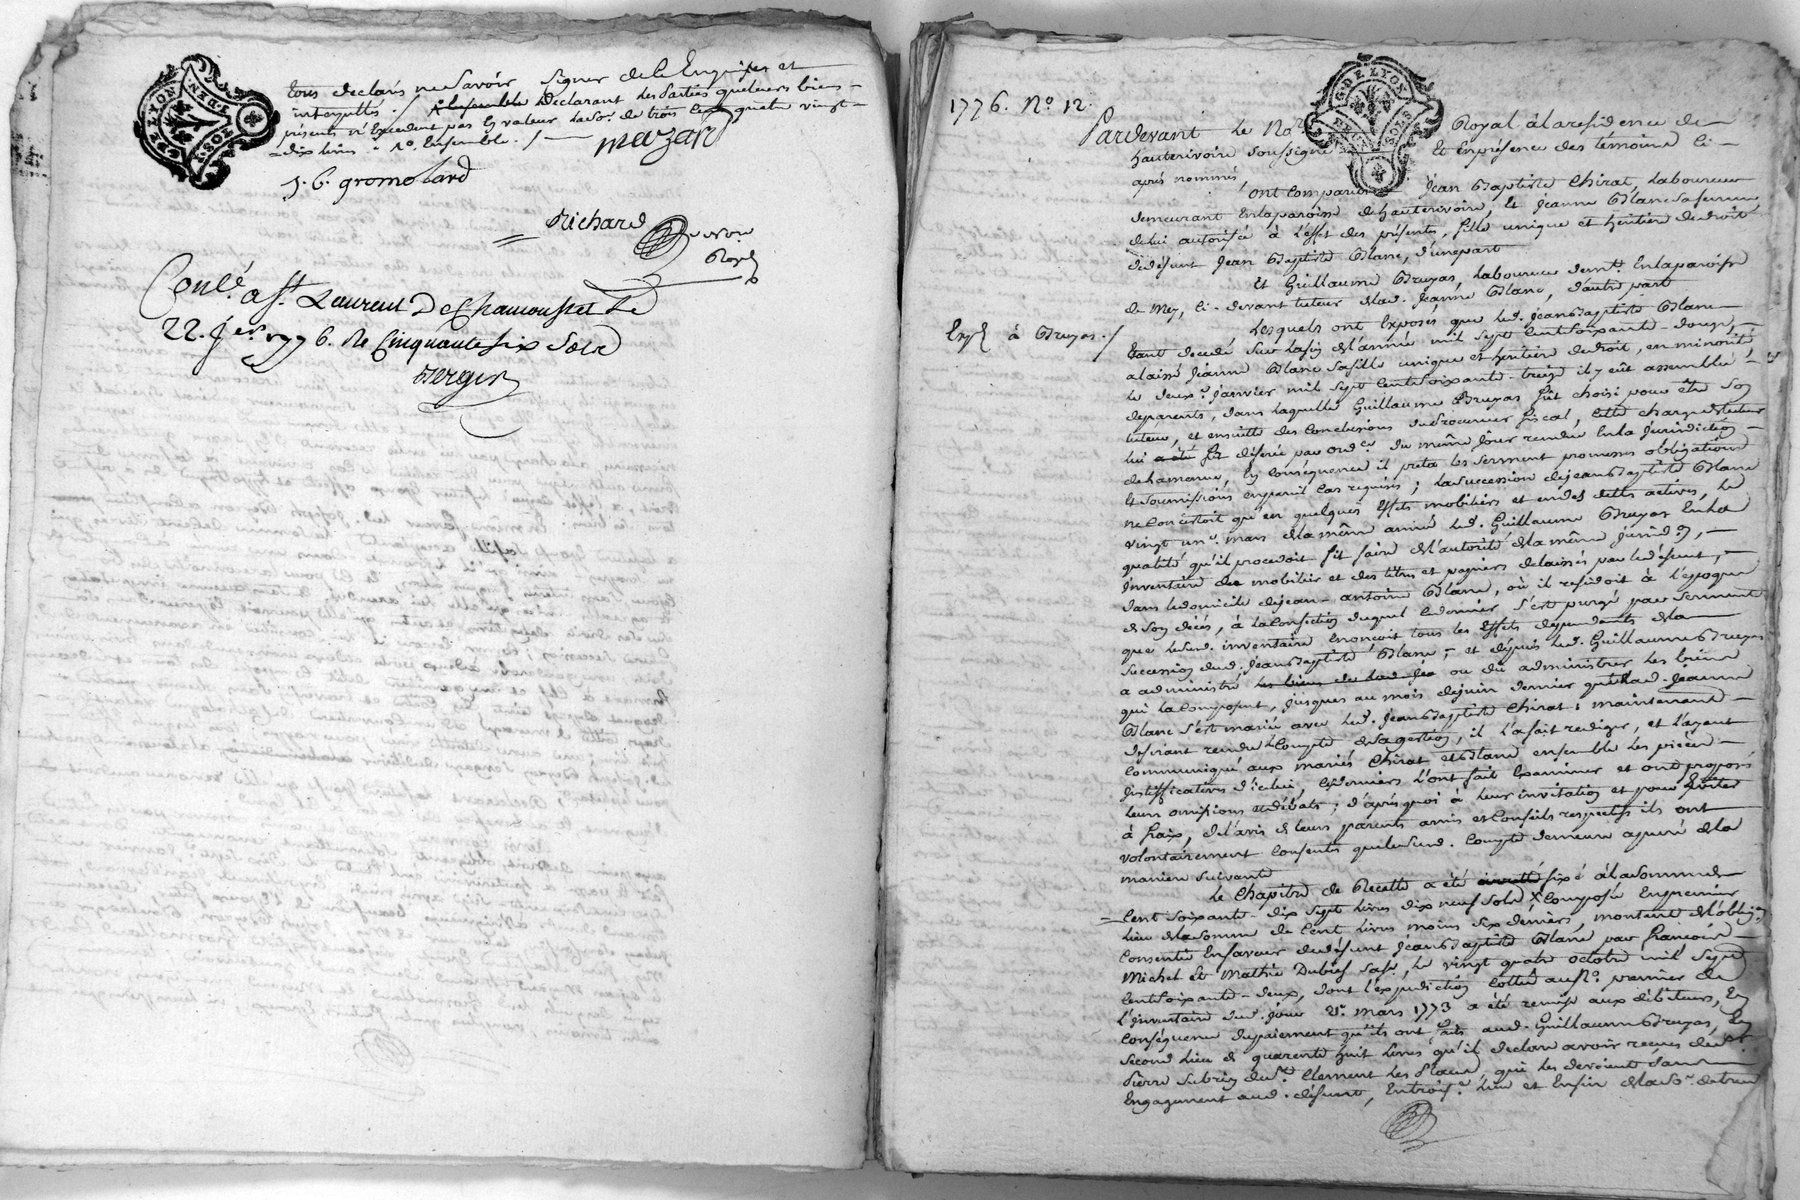 G. DE LYON
DEUX SOLS
tous declaré ne savoir signer de ce Enquis et
interpellés ./. Declarant les parties que leurs biens
présents n'Excedent pas la valeur de la so.e de trois cent quatre vingt-
dix livres . ./.
mazard
J. B. gromolard
Richard
Not.re
Royal
Conlé. a St. Laurent De Chamousset Le
22. Jer. 1776. Re Cinquante six Sols
Berger
1776. No. 12.
G. DE LYON
DEUX SOLS
Pardevant Le No.re Royal à la residence de
hauterivoire soussigné Et en présence des témoins ci-
après nommés,
ont comparu Jean Baptiste Chirat, Laboureur
demeurant en la paroisse de hauterivoire, et Jeanne Blanc sa femme,
de lui autorisée à l'effet des présentes, fille unique et héritière de droit
de défunt Jean Baptiste Blanc, d'une part
Et Guillaume Bruyas, Laboureur demt. En la paroisse
de Mey, ci-devant tuteur de lad. Jeanne Blanc, d'autre part
Lesquels ont Exposés que led. Jean Baptiste Blanc
Exp.é à Bruyas ./.
étant decedé sur la fin de l'année mil sept cent soixante-douze,
a laissé Jeanne Blanc sa fille unique et héritière de droit, en minorité,
le deux.e janvier mil sept cent soixante-treize il y eut assemblée
de parents, dans laquelle Guillaume Bruyas fut choisi pour être son
tuteur, et ensuitte des conclusions du procureur fiscal, cette charge de tuteur
lui a été fut déférée par ord.ce du même jour rendue En la Jurisdiction
de hamaux, En conséquence il prêta les serment promesses obligations
et soumissions en pareil cas requises; la succession de jean Baptiste Blanc
ne consistoit qu'en quelques Effets mobiliers et en des dettes actives, le
vingt un.e mars de la même année led. Guillaume Bruyas En la
qualité qu'il procedoit fit faire de l'autorité de la même jurisd.on, -
Inventaire du mobilier et des titres et papiers delaissés par le défunt, -
dans le domicile de jean-antoine Blanc, où il residoit à l'époque
de son décès, à la confection duquel ce dernier s'est purgé par serment
que led. inventaire Enonçoit tous les Effets dependants de la
succession dud. Jean Baptiste Blanc; et depuis led. Guillaume Bruyas
a administré les biens de lad. ou dû administrer les biens
qui la composent, jusques au mois de juin dernier que lad. Jeanne
Blanc s'est mariée avec led. Jean Baptiste Chirat; maintenant
desirant rendre compte de sa gestion, il l'a fait rediger, et l'ayant
communiqué aux mariés Chirat et Blanc ensemble les pièces
justifficatives d'icelui, ces derniers l'ont fait Examiner et ont proposé
leurs omissions et débats; d'après quoi à leur invitation et pour Eviter
à fraix, de l'avis de leurs parents amis et conseils respectifs ils ont
volontairement consentis que led. Compte demeure apuré de la
maniere suivante
Le Chapitre de Recette a été arretté fixé à la somme de
cent soixante-dix sept livres dix neuf sols Composé En premier
lieu de la somme de cent livres moins six deniers, montant de l'oblig.on
consentie En faveur du défunt Jean Baptiste Blanc par françois
Michel Et Mathie Dubief sa fe, le vingt quatre octobre mil sept
cent soixante-deux, dont l'expedition cottée au No. premier de
l'inventaire dud. jour 21. mars 1773 a été remise aux débiteurs, En
conséquence du paiement qu'ils ont faits aud. Guillaume Bruyas, En
second lieu de quarente huit livres qu'il declare avoir recues de
Pierre Subrin de St. Clement les Places, qui les devoient sans
Engagement aud. défunt, En trois.e lieu et Enfin de la so.e de trente